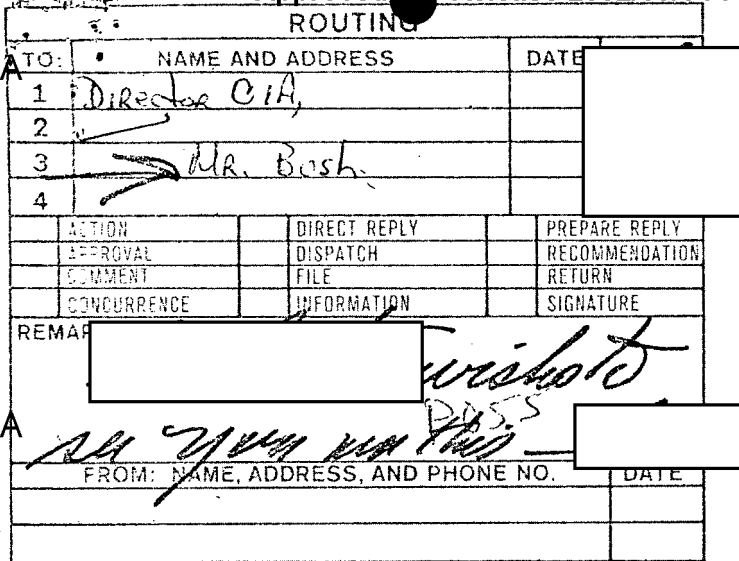 ROUTING
TO: NAME AND ADDRESS DATE
1 Director CIA,
2
3 Mr. Bush.
4
ACTION DIRECT REPLY PREPARE REPLY
APPROVAL DISPATCH RECOMMENDATION
COMMENT FILE RETURN
CONCURRENCE INFORMATION SIGNATURE
REMAR
wish to
see you on this —
FROM: NAME, ADDRESS, AND PHONE NO. DATE